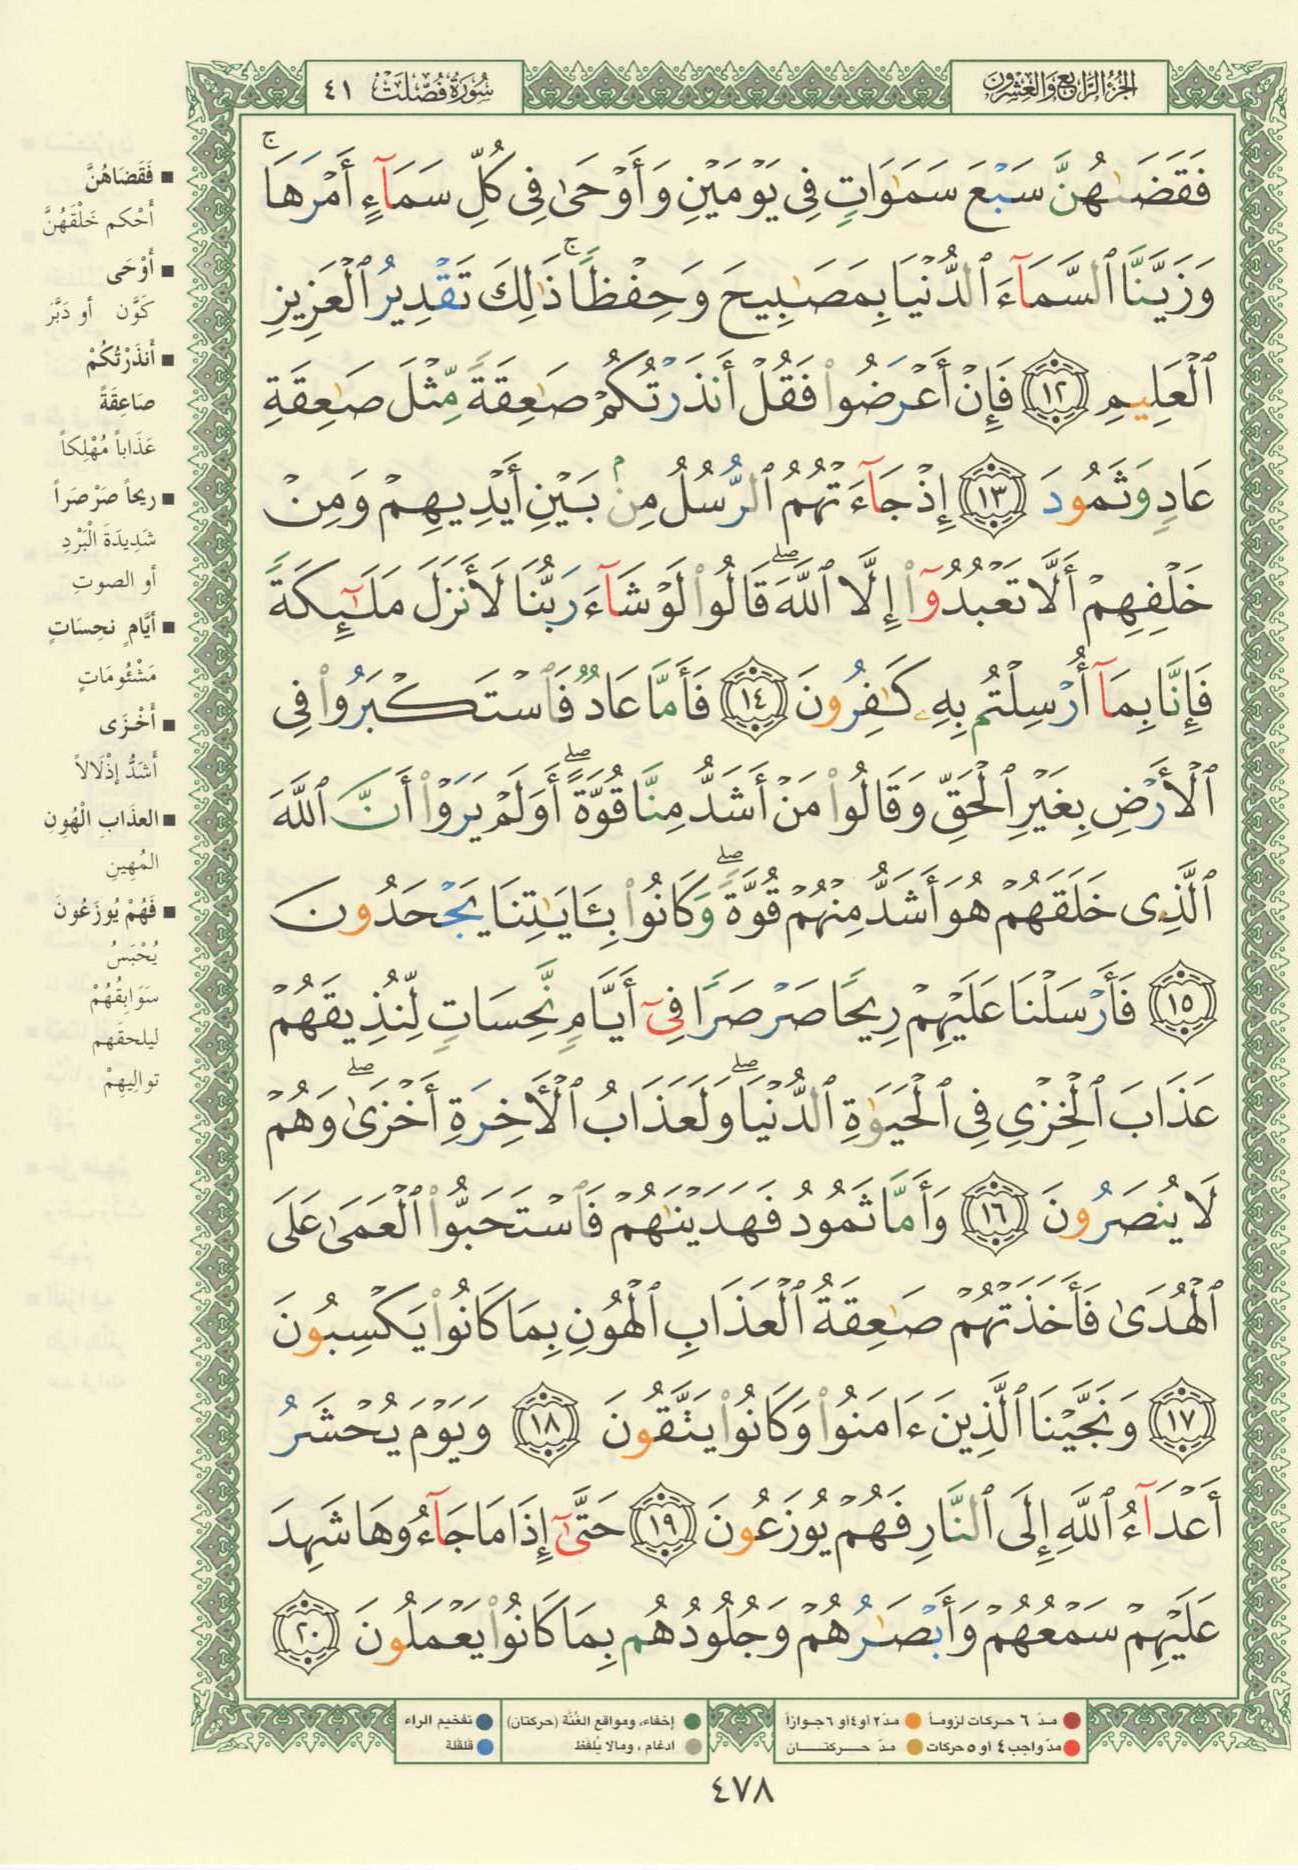 الجزء الرابع والعشرون
سورة فصلت ٤١
فَقَضَىٰهُنَّ سَبْعَ سَمَٰوَاتٍ فِى يَوْمَيْنِ وَأَوْحَىٰ فِى كُلِّ سَمَآءٍ أَمْرَهَا ۚ
وَزَيَّنَّا ٱلسَّمَآءَ ٱلدُّنْيَا بِمَصَٰبِيحَ وَحِفْظًا ۚ ذَٰلِكَ تَقْدِيرُ ٱلْعَزِيزِ
ٱلْعَلِيمِ ١٢ فَإِنْ أَعْرَضُوا۟ فَقُلْ أَنذَرْتُكُمْ صَٰعِقَةً مِّثْلَ صَٰعِقَةِ
عَادٍ وَثَمُودَ ١٣ إِذْ جَآءَتْهُمُ ٱلرُّسُلُ مِنۢ بَيْنِ أَيْدِيهِمْ وَمِنْ
خَلْفِهِمْ أَلَّا تَعْبُدُوٓا۟ إِلَّا ٱللَّهَ ۖ قَالُوا۟ لَوْ شَآءَ رَبُّنَا لَأَنزَلَ مَلَٰٓئِكَةً
فَإِنَّا بِمَآ أُرْسِلْتُم بِهِۦ كَٰفِرُونَ ١٤ فَأَمَّا عَادٌ فَٱسْتَكْبَرُوا۟ فِى
ٱلْأَرْضِ بِغَيْرِ ٱلْحَقِّ وَقَالُوا۟ مَنْ أَشَدُّ مِنَّا قُوَّةً ۖ أَوَلَمْ يَرَوْا۟ أَنَّ ٱللَّهَ
ٱلَّذِى خَلَقَهُمْ هُوَ أَشَدُّ مِنْهُمْ قُوَّةً ۖ وَكَانُوا۟ بِـَٔايَٰتِنَا يَجْحَدُونَ
١٥ فَأَرْسَلْنَا عَلَيْهِمْ رِيحًا صَرْصَرًا فِىٓ أَيَّامٍ نَّحِسَاتٍ لِّنُذِيقَهُمْ
عَذَابَ ٱلْخِزْىِ فِى ٱلْحَيَوٰةِ ٱلدُّنْيَا ۖ وَلَعَذَابُ ٱلْأَخِرَةِ أَخْزَىٰ ۖ وَهُمْ
لَا يُنصَرُونَ ١٦ وَأَمَّا ثَمُودُ فَهَدَيْنَٰهُمْ فَٱسْتَحَبُّوا۟ ٱلْعَمَىٰ عَلَى
ٱلْهُدَىٰ فَأَخَذَتْهُمْ صَٰعِقَةُ ٱلْعَذَابِ ٱلْهُونِ بِمَا كَانُوا۟ يَكْسِبُونَ
١٧ وَنَجَّيْنَا ٱلَّذِينَ ءَامَنُوا۟ وَكَانُوا۟ يَتَّقُونَ ١٨ وَيَوْمَ يُحْشَرُ
أَعْدَآءُ ٱللَّهِ إِلَى ٱلنَّارِ فَهُمْ يُوزَعُونَ ١٩ حَتَّىٰٓ إِذَا مَا جَآءُوهَا شَهِدَ
عَلَيْهِمْ سَمْعُهُمْ وَأَبْصَٰرُهُمْ وَجُلُودُهُم بِمَا كَانُوا۟ يَعْمَلُونَ ٢٠
■ فَقَضَاهُنَّ
أَحْكم خَلْقَهُنَّ
■ أَوْحَى
كَوَّن أو دَبَّرَ
■ أَنذَرْتُكُمْ
صَاعِقَةً
عَذَاباً مُهْلِكاً
■ ريحاً صَرْصَراً
شَدِيدَةَ الْبَرْدِ
أو الصوتِ
■ أَيَّامٍ نحِسَاتٍ
مَشْئُومَاتٍ
■ أَخْزَى
أَشَدُّ إذْلَالاً
■ العذَابِ الْهُونِ
المُهِينِ
■ فَهُمْ يُوزَعُونَ
يُحْبَسُ
سَوَابِقُهُمْ
ليلحقَهم
توالِيهِمْ
مدّ ٦ حركات لزوماً ● مدّ ٢ أو ٤ أو ٦ جوازاً
مدّ واجب ٤ أو ٥ حركات ● مدّ حركتان
إخفاء، ومواقع الغُنَّة (حركتان) ● تفخيم الراء
ادغام ، ومالا يُلفظ ● قلقلة
٤٧٨